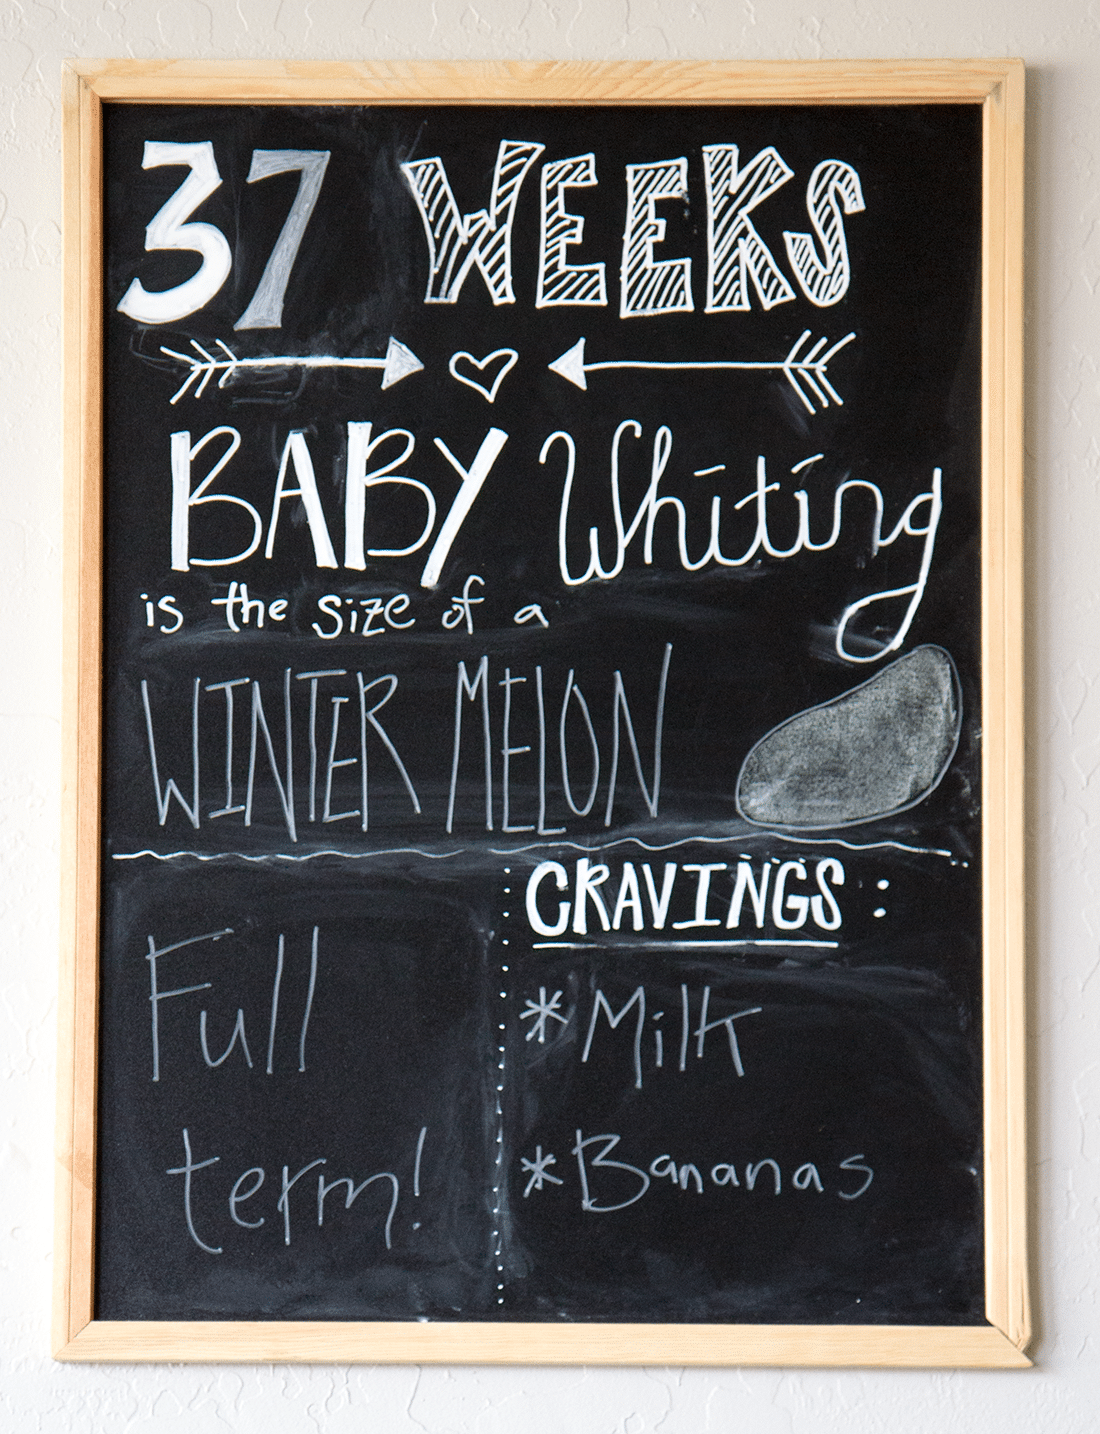 37 WEEKS
BABY Whiting
is the size of a
WINTER MELON
Full
term!
CRAVINGS :
* Milk
* Bananas